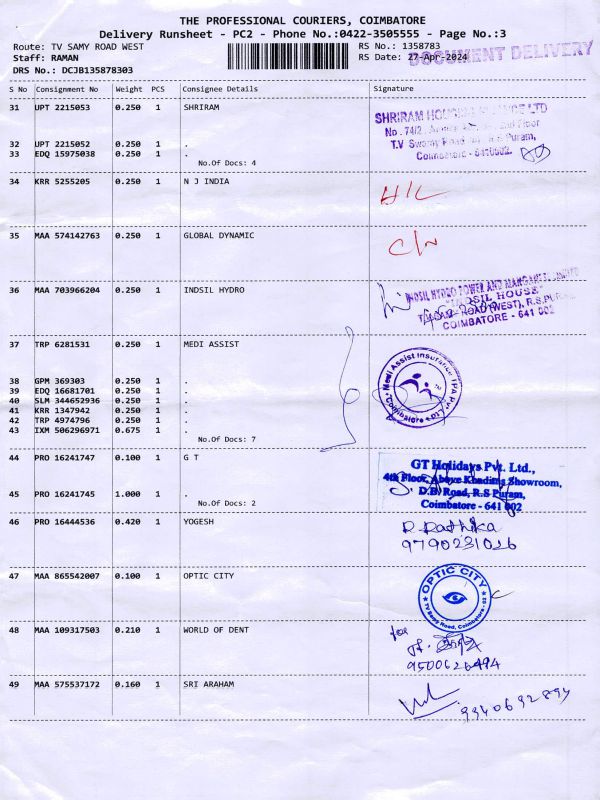 THE PROFESSIONAL COURIERS, COIMBATORE
Delivery Runsheet - PC2 - Phone No.:0422-3505555 - Page No.:3
Route: TV SAMY ROAD WEST
RS No.: 1358783
Staff: RAMAN
RS Date: 27-Apr-2024
DOCUMENT DELIVERY
DRS No.: DCJB135878303
S No Consignment No Weight PCS Consignee Details Signature
31 UPT 2215053 0.250 1 SHRIRAM
SHRIRAM HOUSING FINANCE LTD
No. 74/2, Floor
T.V Swamy Road R.S Puram,
Coimbatore - 641002.
32 UPT 2215052 0.250 1 .
33 EDQ 15975038 0.250 1 .
No.Of Docs: 4
34 KRR 5255205 0.250 1 N J INDIA
H/L
35 MAA 574142763 0.250 1 GLOBAL DYNAMIC
C/N
36 MAA 703966204 0.250 1 INDSIL HYDRO
INDSIL HYDRO POWER AND MANGANESE LIMITED
"INDSIL HOUSE"
ROAD (WEST), R.S.PURAM,
COIMBATORE - 641 002
37 TRP 6281531 0.250 1 MEDI ASSIST
Medi Assist Insurance TPA Pvt. Ltd.
Coimbatore
38 GPM 369303 0.250 1 .
39 EDQ 16681701 0.250 1 .
40 SLM 344652936 0.250 1 .
41 KRR 1347942 0.250 1 .
42 TRP 4974796 0.250 1 .
43 IXM 506296971 0.675 1 .
No.Of Docs: 7
44 PRO 16241747 0.100 1 G T
GT Holidays Pvt. Ltd.,
4th Floor, Above Khadims Showroom,
D.B. Road, R.S Puram,
Coimbatore - 641 002
45 PRO 16241745 1.000 1 .
No.Of Docs: 2
46 PRO 16444536 0.420 1 YOGESH
R. Rathika
9790231026
47 MAA 865542007 0.100 1 OPTIC CITY
OPTIC CITY
TV Samy Road, Coimbatore - 02
48 MAA 109317503 0.210 1 WORLD OF DENT
for
9500626494
49 MAA 575537172 0.160 1 SRI ARAHAM
9940692894